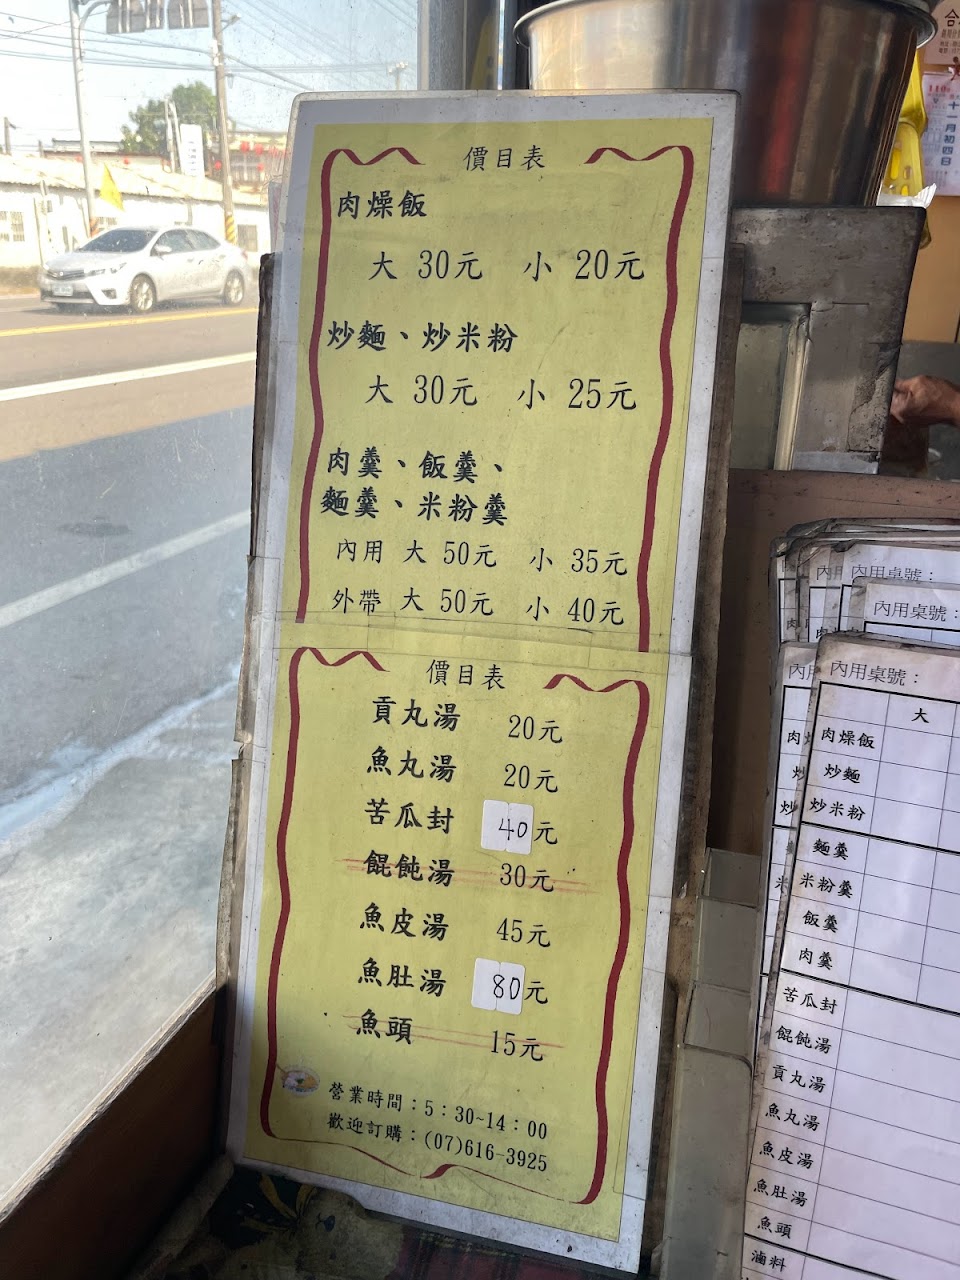 價目表
肉燥飯
大 30元 小 20元
炒麵、炒米粉
大 30元 小 25元
肉羹、飯羹、
麵羹、米粉羹
內用 大 50元 小 35元
外帶 大 50元 小 40元
價目表
貢丸湯 20元
魚丸湯 20元
苦瓜封 40元
餛飩湯 30元
魚皮湯 45元
魚肚湯 80元
魚頭 15元
營業時間：5：30~14：00
歡迎訂購：(07)616-3925
十一月初四日
內用桌號：
內用桌號：
內用桌號：
大
肉燥飯
炒麵
炒米粉
麵羹
米粉羹
飯羹
肉羹
苦瓜封
餛飩湯
貢丸湯
魚丸湯
魚皮湯
魚肚湯
魚頭
滷料